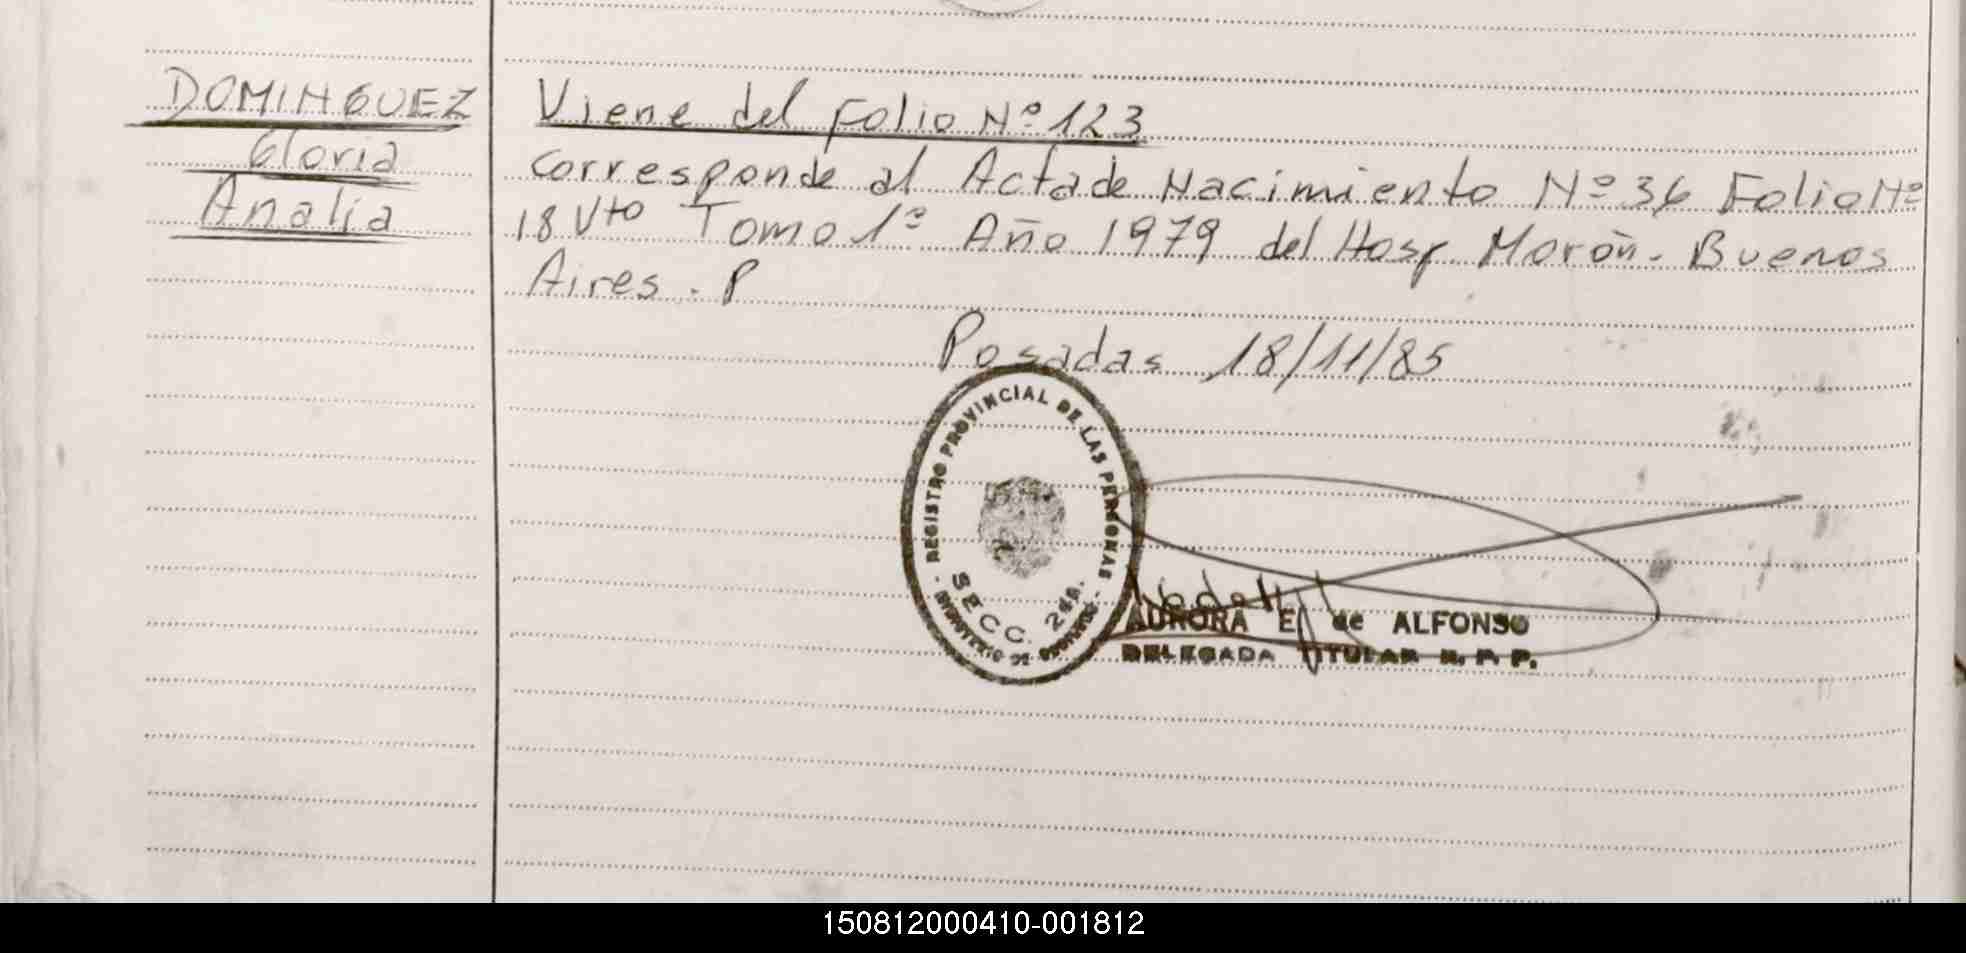 DOMINGUEZ
Gloria
Analia
Viene del Folio Nº 123
corresponde al Acta de Nacimiento Nº 36 Folio Nº
18 Vto Tomo 1º Año 1979 del Hosp. Morón. Buenos
Aires. P
Posadas 18/11/85
REGISTRO PROVINCIAL DE LAS PERSONAS
SECC. 2da.
AURORA E. de ALFONSO
DELEGADA TITULAR R. P. P.
150812000410-001812